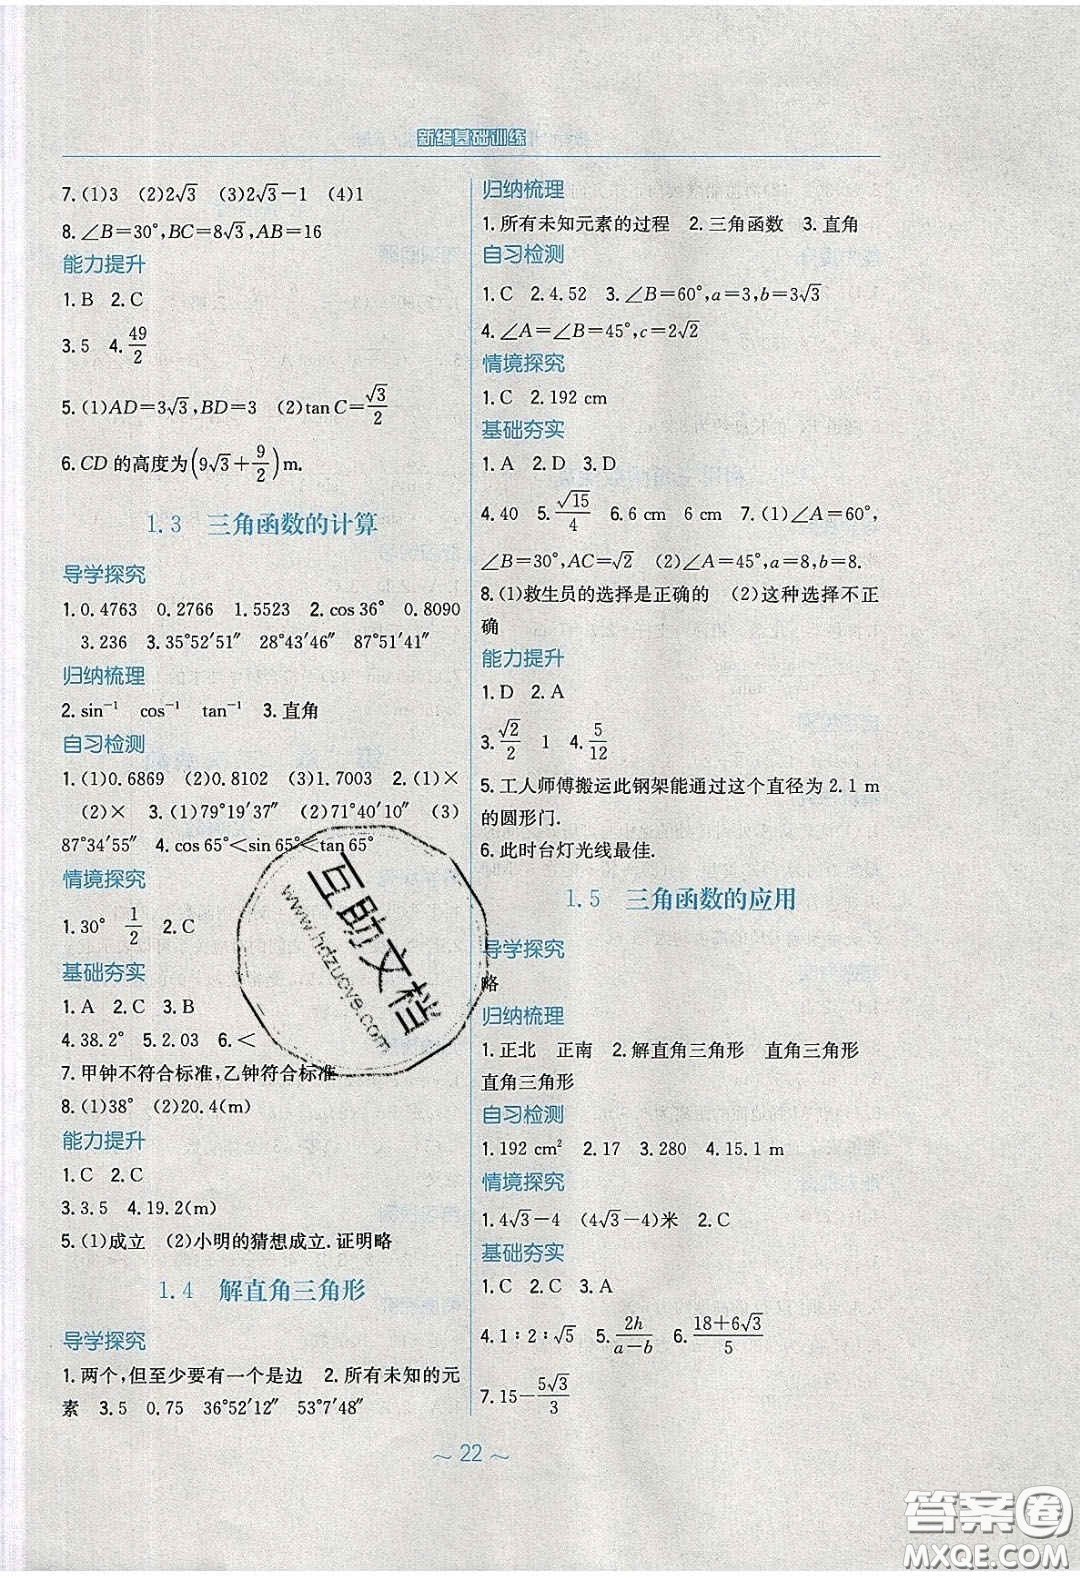 新编基础训练
7.(1)3 (2)2√3 (3)2√3−1 (4)1
8.∠B=30°,BC=8√3,AB=16
能力提升
1.B 2.C
3.5 4.49/2
5.(1)AD=3√3,BD=3 (2)tan C=√3/2
6.CD 的高度为(9√3+9/2)m.
1.3 三角函数的计算
导学探究
1.0.4763 0.2766 1.5523 2.cos 36° 0.8090
3.236 3.35°52′51″ 28°43′46″ 87°52′41″
归纳梳理
2.sin⁻¹ cos⁻¹ tan⁻¹ 3.直角
自习检测
1.(1)0.6869 (2)0.8102 (3)1.7003 2.(1)×
(2)× 3.(1)79°19′37″ (2)71°40′40″ (3)
87°34′55″ 4.cos 65°<sin 65°<tan 65°
情境探究
1.30° 1/2 2.C
基础夯实
1.A 2.C 3.B
4.38.2° 5.2.03 6.<
7.甲钟不符合标准,乙钟符合标准
8.(1)38° (2)20.4(m)
能力提升
1.C 2.C
3.3.5 4.19.2(m)
5.(1)成立 (2)小明的猜想成立.证明略
1.4 解直角三角形
导学探究
1.两个,但至少要有一个是边 2.所有未知的元
素 3.5 0.75 36°52′12″ 53°7′48″
归纳梳理
1.所有未知元素的过程 2.三角函数 3.直角
自习检测
1.C 2.4.52 3.∠B=60°,a=3,b=3√3
4.∠A=∠B=45°,c=2√2
情境探究
1.C 2.192 cm
基础夯实
1.A 2.D 3.D
4.40 5.√15/4 6.6 cm 6 cm 7.(1)∠A=60°,
∠B=30°,AC=√2 (2)∠A=45°,a=8,b=8.
8.(1)救生员的选择是正确的 (2)这种选择不正
确
能力提升
1.D 2.A
3.√2/2 1 4.5/12
5.工人师傅搬运此钢架能通过这个直径为 2.1 m
的圆形门.
6.此时台灯光线最佳.
1.5 三角函数的应用
导学探究
略
归纳梳理
1.正北 正南 2.解直角三角形 直角三角形
直角三角形
自习检测
1.192 cm² 2.17 3.280 4.15.1 m
情境探究
1.4√3−4 (4√3−4)米 2.C
基础夯实
1.C 2.C 3.A
4.1∶2∶√5 5.2h/(a−b) 6.(18+6√3)/5
7.15−5√3/3
～ 22 ～
互助文档
www.hdzuoye.com
答案圈
MXQE.COM